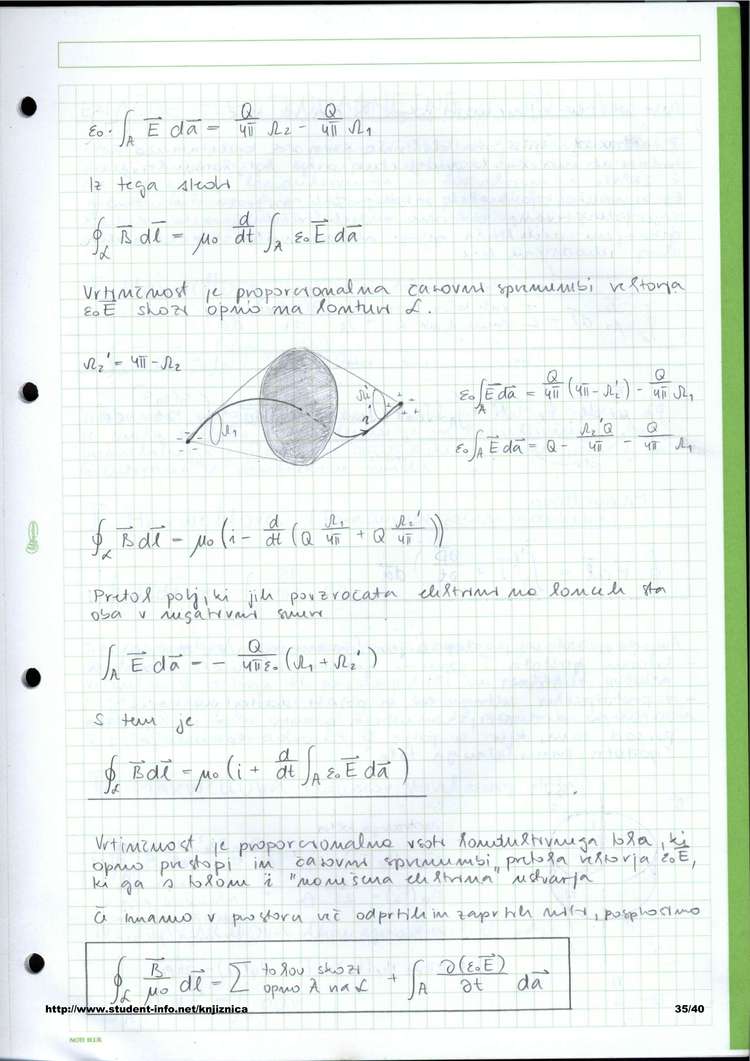 ε₀·∫_A E⃗ da⃗ = Q/4π Ω₂ - Q/4π Ω₁
Iz tega sledi
∮_L B⃗ dl⃗ = μ₀ d/dt ∫_A ε₀E⃗ da⃗
Vrtinčnost je proporcionalna časovni spremembi vektorja
ε₀E⃗ skozi opno na konturi L.
Ω₂' = 4π - Ω₂
Ω₁
Ω₂'
i
ε₀∫_A E⃗ da⃗ = Q/4π (4π - Ω₂') - Q/4π Ω₁
ε₀∫_A E⃗ da⃗ = Q - Ω₂'Q/4π - Q/4π Ω₁
∮_L B⃗ dl⃗ = μ₀ (i - d/dt (Q Ω₁/4π + Q Ω₂'/4π))
Pretok polj, ki jih povzročata elektrini na koncih sta
oba v negativni smeri
∫_A E⃗ da⃗ = - Q/4πε₀ (Ω₁ + Ω₂')
S tem je
∮_L B⃗ dl⃗ = μ₀ (i + d/dt ∫_A ε₀E⃗ da⃗)
Vrtinčnost je proporcionalna vsoti konduktivnega toka, ki
opno prestopi in časovni spremembi pretoka vektorja ε₀E⃗,
ki ga s tokom i "nanešena elektrina" ustvarja
Če imamo v prostoru več odprtih in zaprtih niti, posplošimo
∮_L B⃗/μ₀ dl⃗ = Σ tokov skozi opno A na L + ∫_A ∂(ε₀E⃗)/∂t da⃗
http://www.student-info.net/knjiznica 35/40